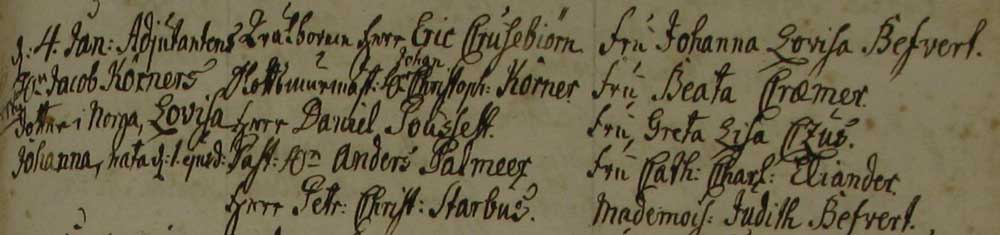 d: 4. Jan: Adjutantens Wälborne Herr Eric Crusebiörn. Fru Johanna Lovisa Befvert.
Hr Jacob Körners Slottsmurmäst: Hr Johan Christoph: Körner. Fru Beata Cræmer.
dotter i Norga, Lovisa Herr Daniel Pousset. Fru, Greta Lisa Czus.
Johanna, nata d: 1. ejusd: Past: Hrn Anders Palmeer Fru Cath: Charl: Eliander.
Herr Petr: Christ: Starbus. Mademois: Judith Befvert.